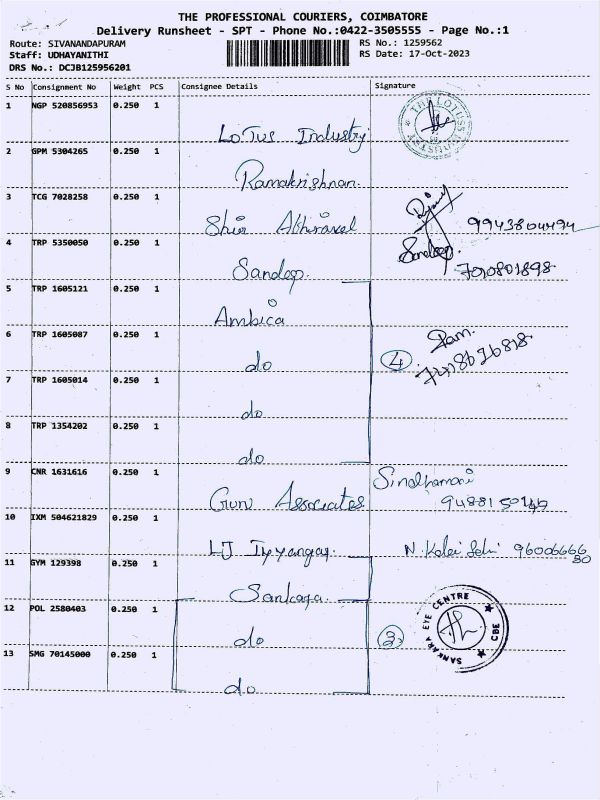 THE PROFESSIONAL COURIERS, COIMBATORE
Delivery Runsheet - SPT - Phone No.:0422-3505555 - Page No.:1
Route: SIVANANDAPURAM RS No.: 1259562
Staff: UDHAYANITHI RS Date: 17-Oct-2023
DRS No.: DCJB125956201
S No Consignment No Weight PCS Consignee Details Signature
1 NGP 520856953 0.250 1
Lotus Industry
THE LOTUSS INDUSTRY
2 GPM 5304265 0.250 1
Ramakrishnan.
3 TCG 7028258 0.250 1
Shir 9943804494
4 TRP 5350050 0.250 1
Sandeep. Sandeep. 7010801898
5 TRP 1605121 0.250 1
Ambica
6 TRP 1605087 0.250 1 Ram.
do 4
7 TRP 1605014 0.250 1
do
8 TRP 1354202 0.250 1
do
9 CNR 1631616 0.250 1
Guru Associates
10 IXM 504621829 0.250 1
LJ Iyyangar 9600666630
11 GYM 129398 0.250 1
Sankara
12 POL 2580403 0.250 1
do 3 SANKARA EYE CENTRE CBE
13 SMG 70145000 0.250 1
do